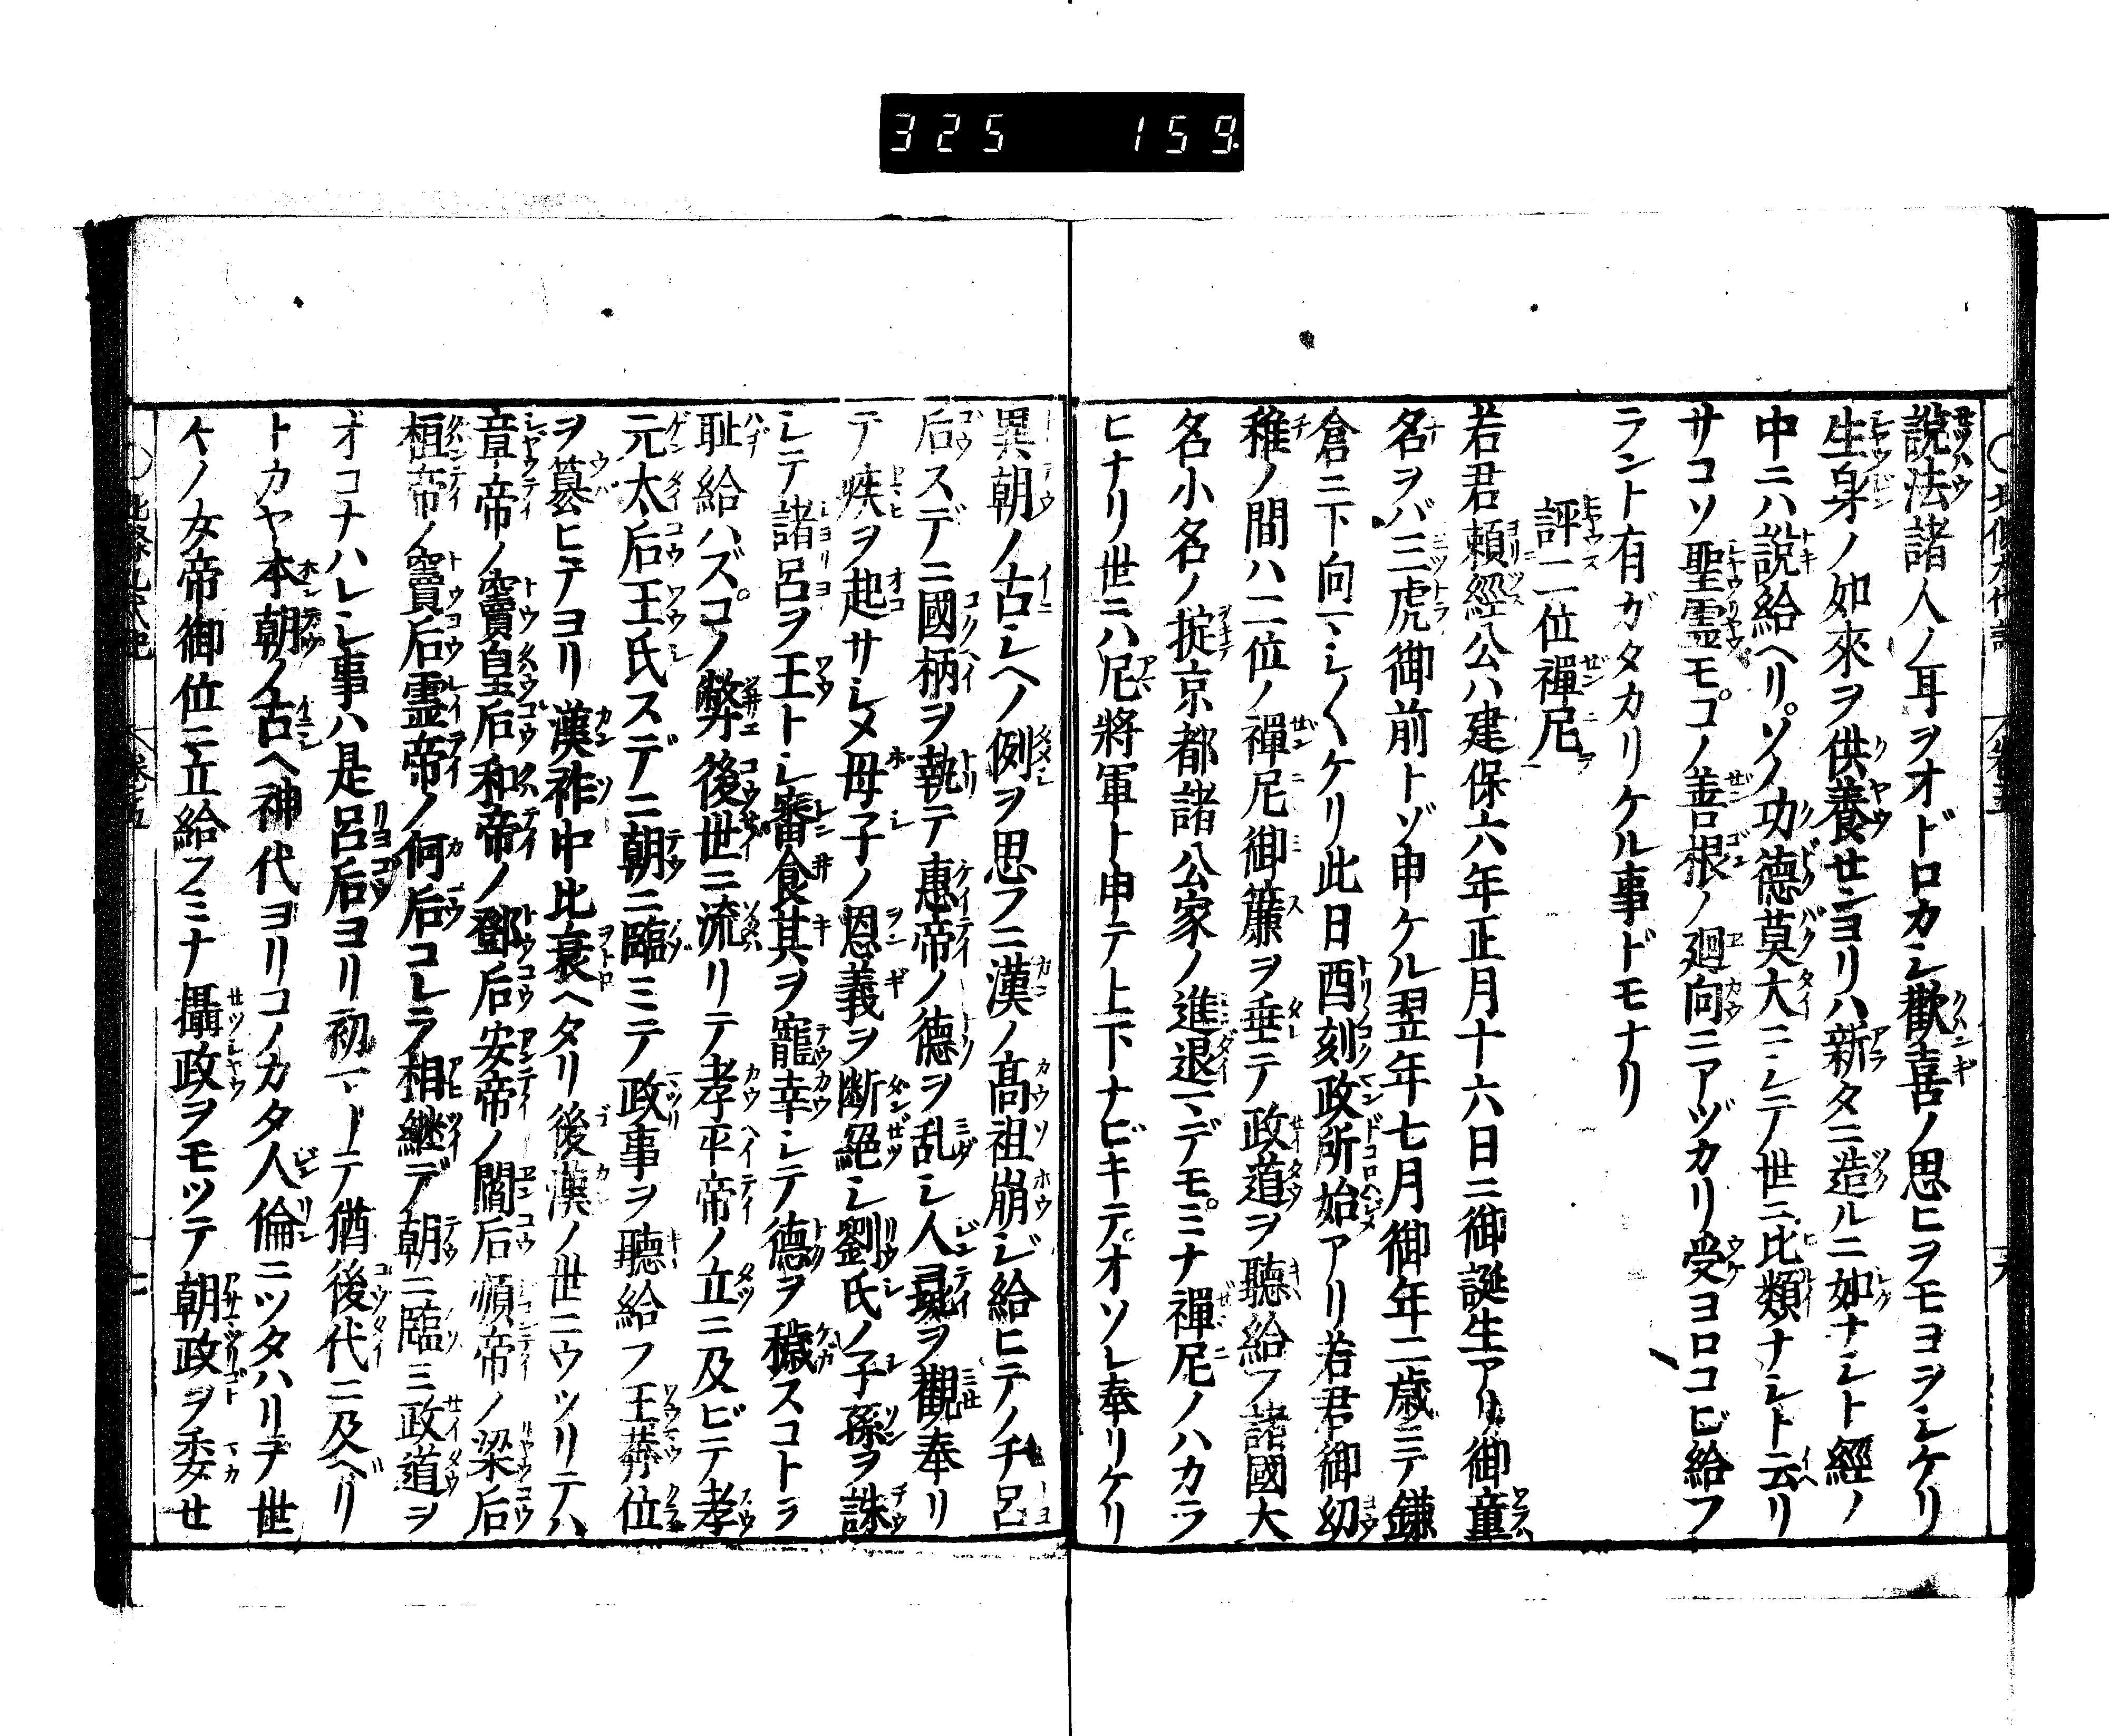 325 159
説法諸人ノ耳ヲオドロカシ歓喜ノ思ヒヲモヨヲシケリ
生身ノ如來ヲ供養センヨリハ新タニ造ルニ如ナシト經ノ
中ニハ説給ヘリ。ソノ功德莫大ニシテ世ニ比類ナシト云リ
サコソ聖霊モコノ善根ノ廻向ニアヅカリ受ヨロコビ給フ
ラント有ガタカリケル事ドモナリ
評二位禪尼
若君頼經公ハ建保六年正月十六日ニ御誕生アリ御童
名ヲバ三虎御前トゾ申ケル翌年七月御年二歳ニテ鎌
倉ニ下向マシ〱ケリ此日酉刻政所始アリ若君御幼
稚ノ間ハ二位ノ禪尼御簾ヲ垂テ政道ヲ聽給フ諸國大
名小名ノ掟京都諸公家ノ進退マデモ。ミナ禪尼ノハカラ
ヒナリ世ニハ尼將軍ト申テ上下ナビキテ。オソレ奉リケリ
異朝ノ古シヘノ例ヲ思フニ漢ノ高祖崩ジ給ヒテノチ呂
后スデニ國柄ヲ執テ惠帝ノ德ヲ乱シ人彘ヲ觀奉リ
テ疾ヲ起サシメ母子ノ恩義ヲ断絕シ劉氏ノ子孫ヲ誅
シテ諸呂ヲ王トシ審食其ヲ寵幸シテ德ヲ穢スコトヲ
耻給ハズ。コノ弊後世ニ流リテ孝平帝ノ立ニ及ビテ孝
元太后王氏スデニ朝ニ臨ミテ政事ヲ聽給フ王莽位
ヲ簒ヒテヨリ漢祚中比衰ヘタリ後漢ノ世ニウツリテハ
章帝ノ竇皇后和帝ノ鄧后安帝ノ閻后順帝ノ梁后
桓帝ノ竇后霊帝ノ何后コレラ相継デ朝ニ臨ミ政道ヲ
オコナハレシ事ハ是呂后ヨリ初マリテ猶後代ニ及ベリ
トカヤ本朝ノ古ヘ神代ヨリコノカタ人倫ニツタハリテ世
々ノ女帝御位ニ立給フミナ攝政ヲモツテ朝政ヲ委セ